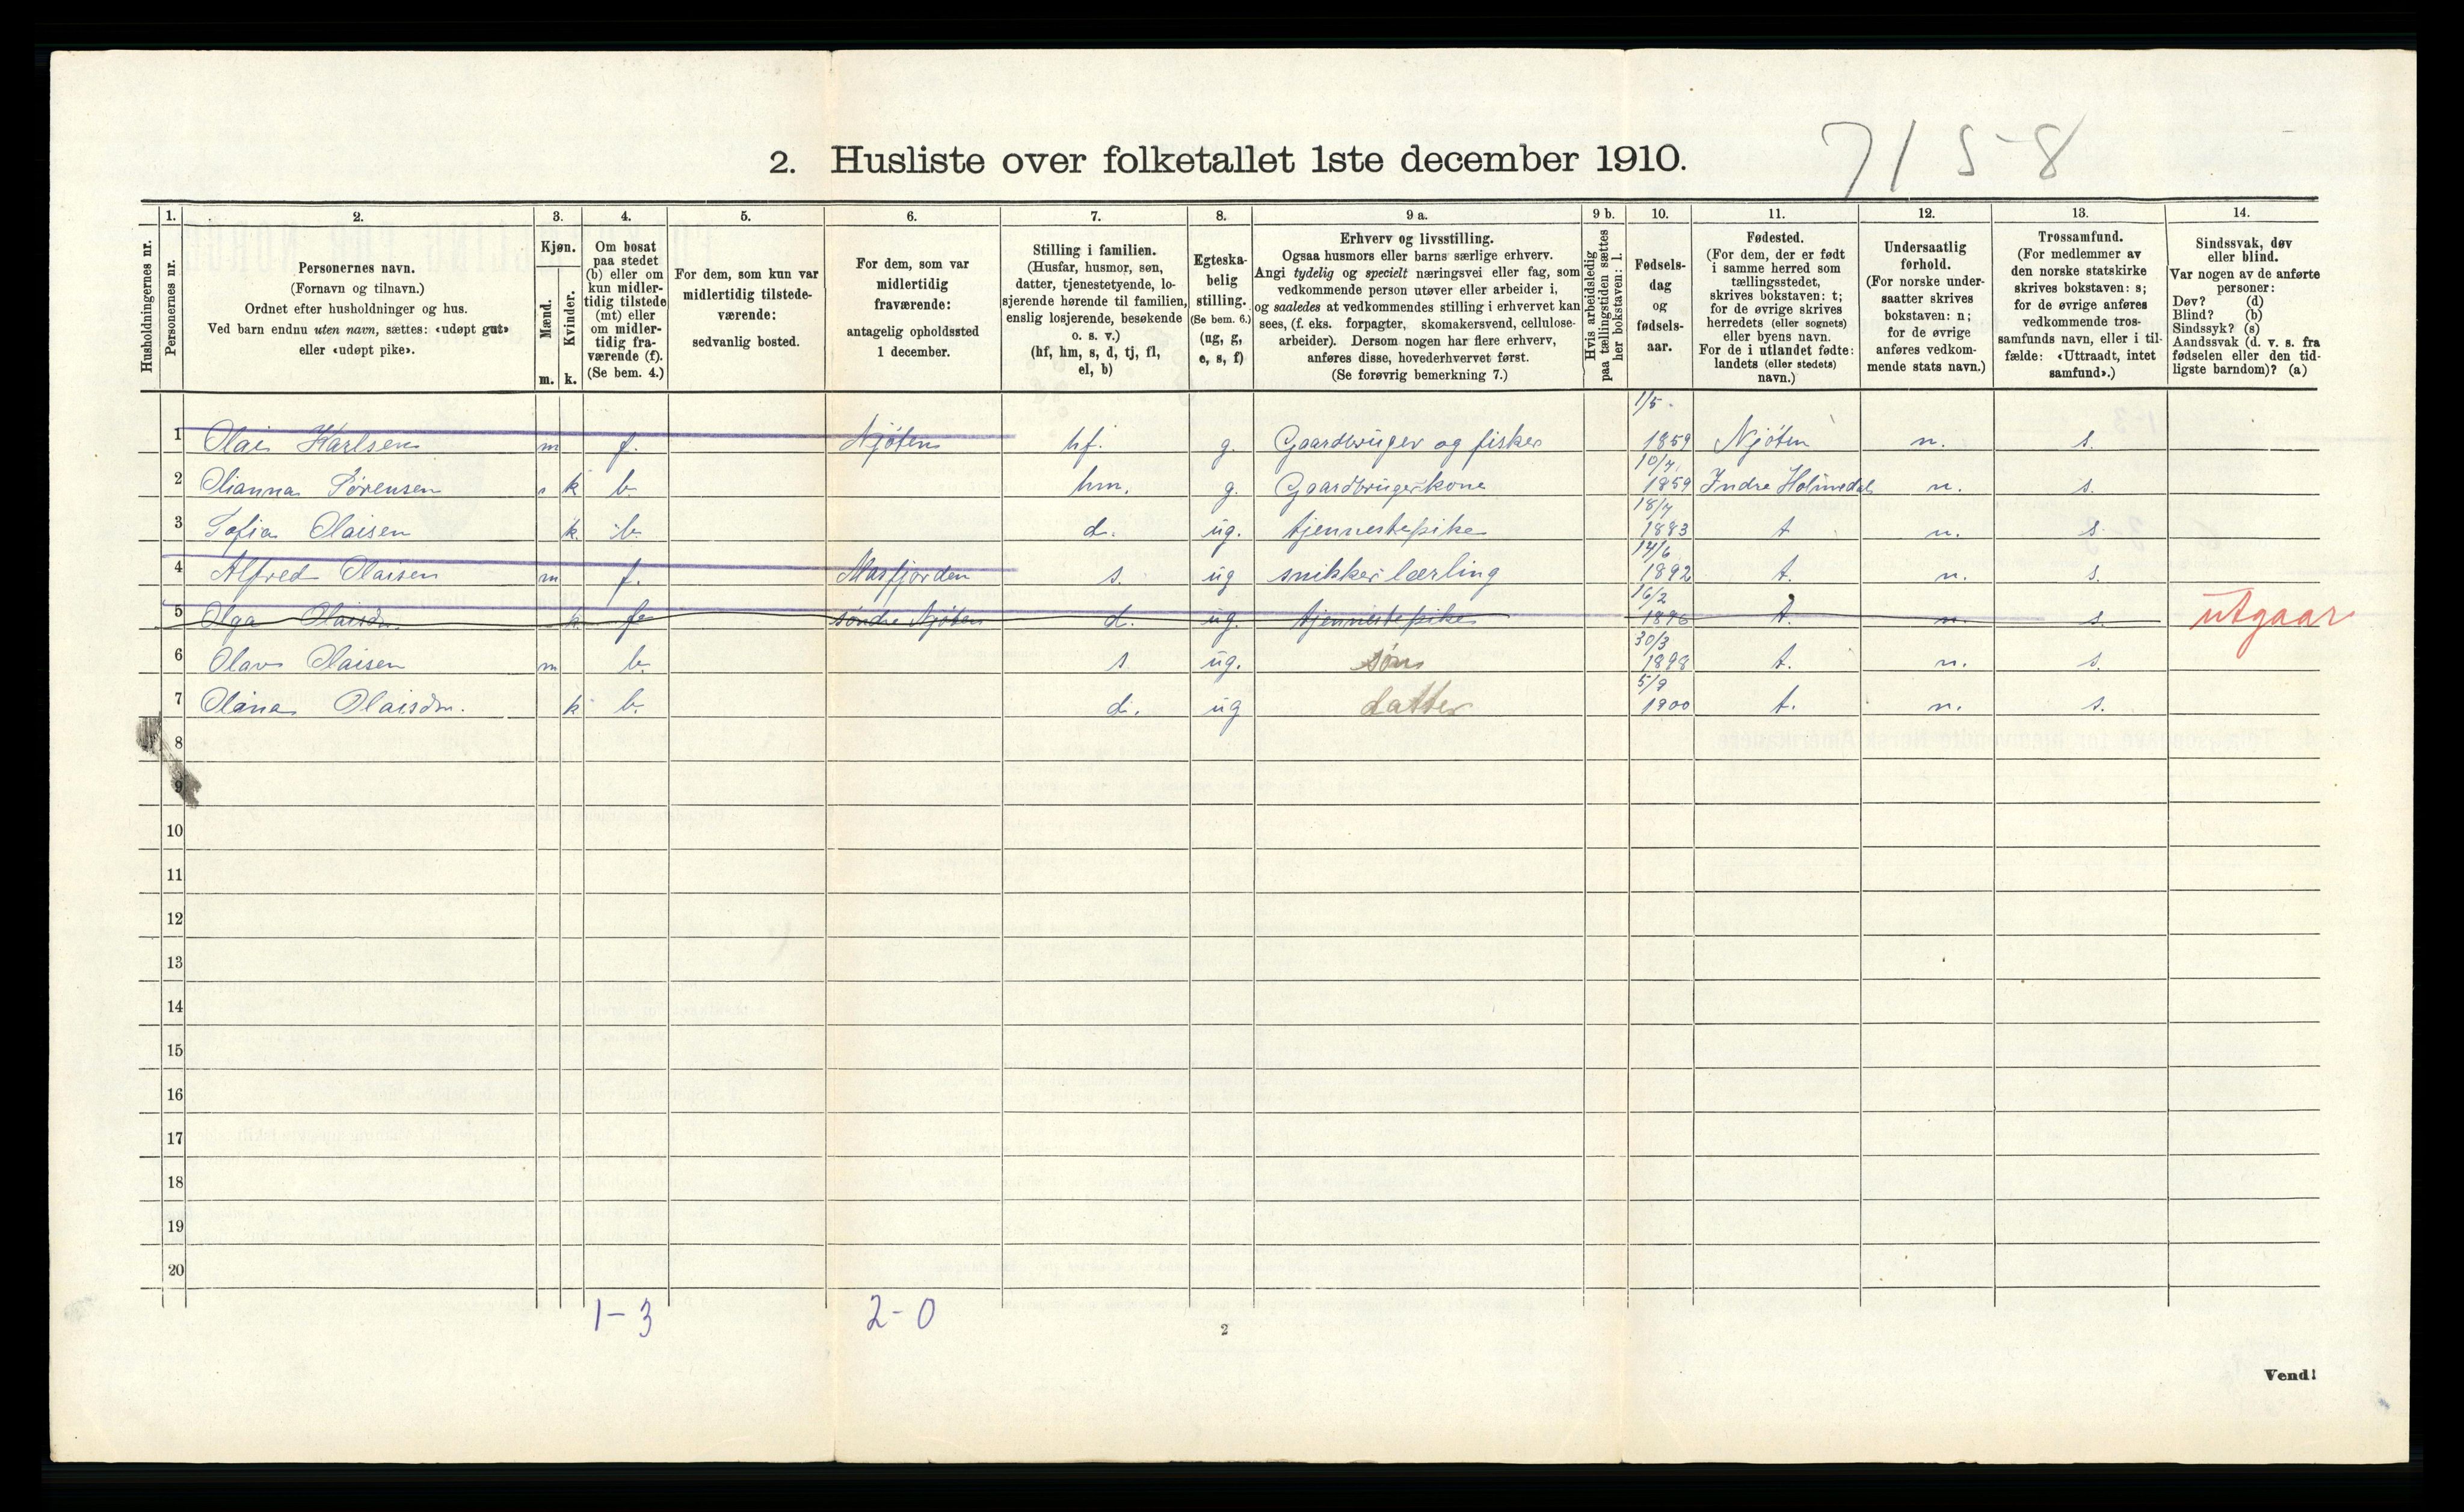 2. Husliste over folketallet 1ste december 1910.
7158
1. 2. 3. 4. 5. 6. 7. 8. 9 a. 9 b. 10. 11. 12. 13. 14.
Husholdningernes nr.
Personernes nr.
Personernes navn.
(Fornavn og tilnavn.)
Ordnet efter husholdninger og hus.
Ved barn endnu uten navn, sættes: «udøpt gut»
eller «udøpt pike».
Kjøn.
Mænd.
Kvinder.
m. k.
Om bosat
paa stedet
(b) eller om
kun midler-
tidig tilstede
(mt) eller
om midler-
tidig fra-
værende (f).
(Se bem. 4.)
For dem, som kun var
midlertidig tilstede-
værende:
sedvanlig bosted.
For dem, som var
midlertidig
fraværende:
antagelig opholdssted
1 december.
Stilling i familien.
(Husfar, husmor, søn,
datter, tjenestetyende, lo-
sjerende hørende til familien,
enslig losjerende, besøkende
o. s. v.)
(hf, hm, s, d, tj, fl,
el, b)
Egteska-
belig
stilling.
(Se bem. 6.)
(ug, g,
e, s, f)
Erhverv og livsstilling.
Ogsaa husmors eller barns særlige erhverv.
Angi tydelig og specielt næringsvei eller fag, som
vedkommende person utøver eller arbeider i,
og saaledes at vedkommendes stilling i erhvervet kan
sees, (f. eks. forpagter, skomakersvend, cellulose-
arbeider). Dersom nogen har flere erhverv,
anføres disse, hovederhvervet først.
(Se forøvrig bemerkning 7.)
Hvis arbeidsledig
paa tællingstiden sættes
her bokstaven: l.
Fødsels-
dag
og
fødsels-
aar.
Fødested.
(For dem, der er født
i samme herred som
tællingsstedet,
skrives bokstaven: t;
for de øvrige skrives
herredets (eller sognets)
eller byens navn.
For de i utlandet fødte:
landets (eller stedets)
navn.)
Undersaatlig
forhold.
(For norske under-
saatter skrives
bokstaven: n;
for de øvrige
anføres vedkom-
mende stats navn.)
Trossamfund.
(For medlemmer av
den norske statskirke
skrives bokstaven: s;
for de øvrige anføres
vedkommende tros-
samfunds navn, eller i til-
fælde: «Uttraadt, intet
samfund».)
Sindssvak, døv
eller blind.
Var nogen av de anførte
personer:
Døv? (d)
Blind? (b)
Sindssyk? (s)
Aandssvak (d. v. s. fra
fødselen eller den tid-
ligste barndom)? (a)
1 Olai Karlsen m f. Njöten hf. g. Gaardbruger og fisker 1/5 1859 Njöten n. s.
2 Olianna Sörensen k b. hm. g. Gaardbrugerkone 10/4 1859 Indre Holmedal n. s.
3 Sofia Olaisen k b. d. ug. tjennestepike 18/4 1883 t n. s.
4 Alfred Olaisen m f. Masfjorden s. ug snikkerlærling 14/6 1892 t. n. s.
5 Olga Olaisdr. k f söndre Njöten d. ug. tjennestepike 16/2 1896 t. n. s. utgaar
6 Olav Olaisen m b. s ug. søn 30/3 1898 t. n. s.
7 Olana Olaisdr. k b. d. ug datter 5/9 1900 t. n. s.
8
9
10
11
12
13
14
15
16
17
18
19
20
1-3 2-0
2
Vend!